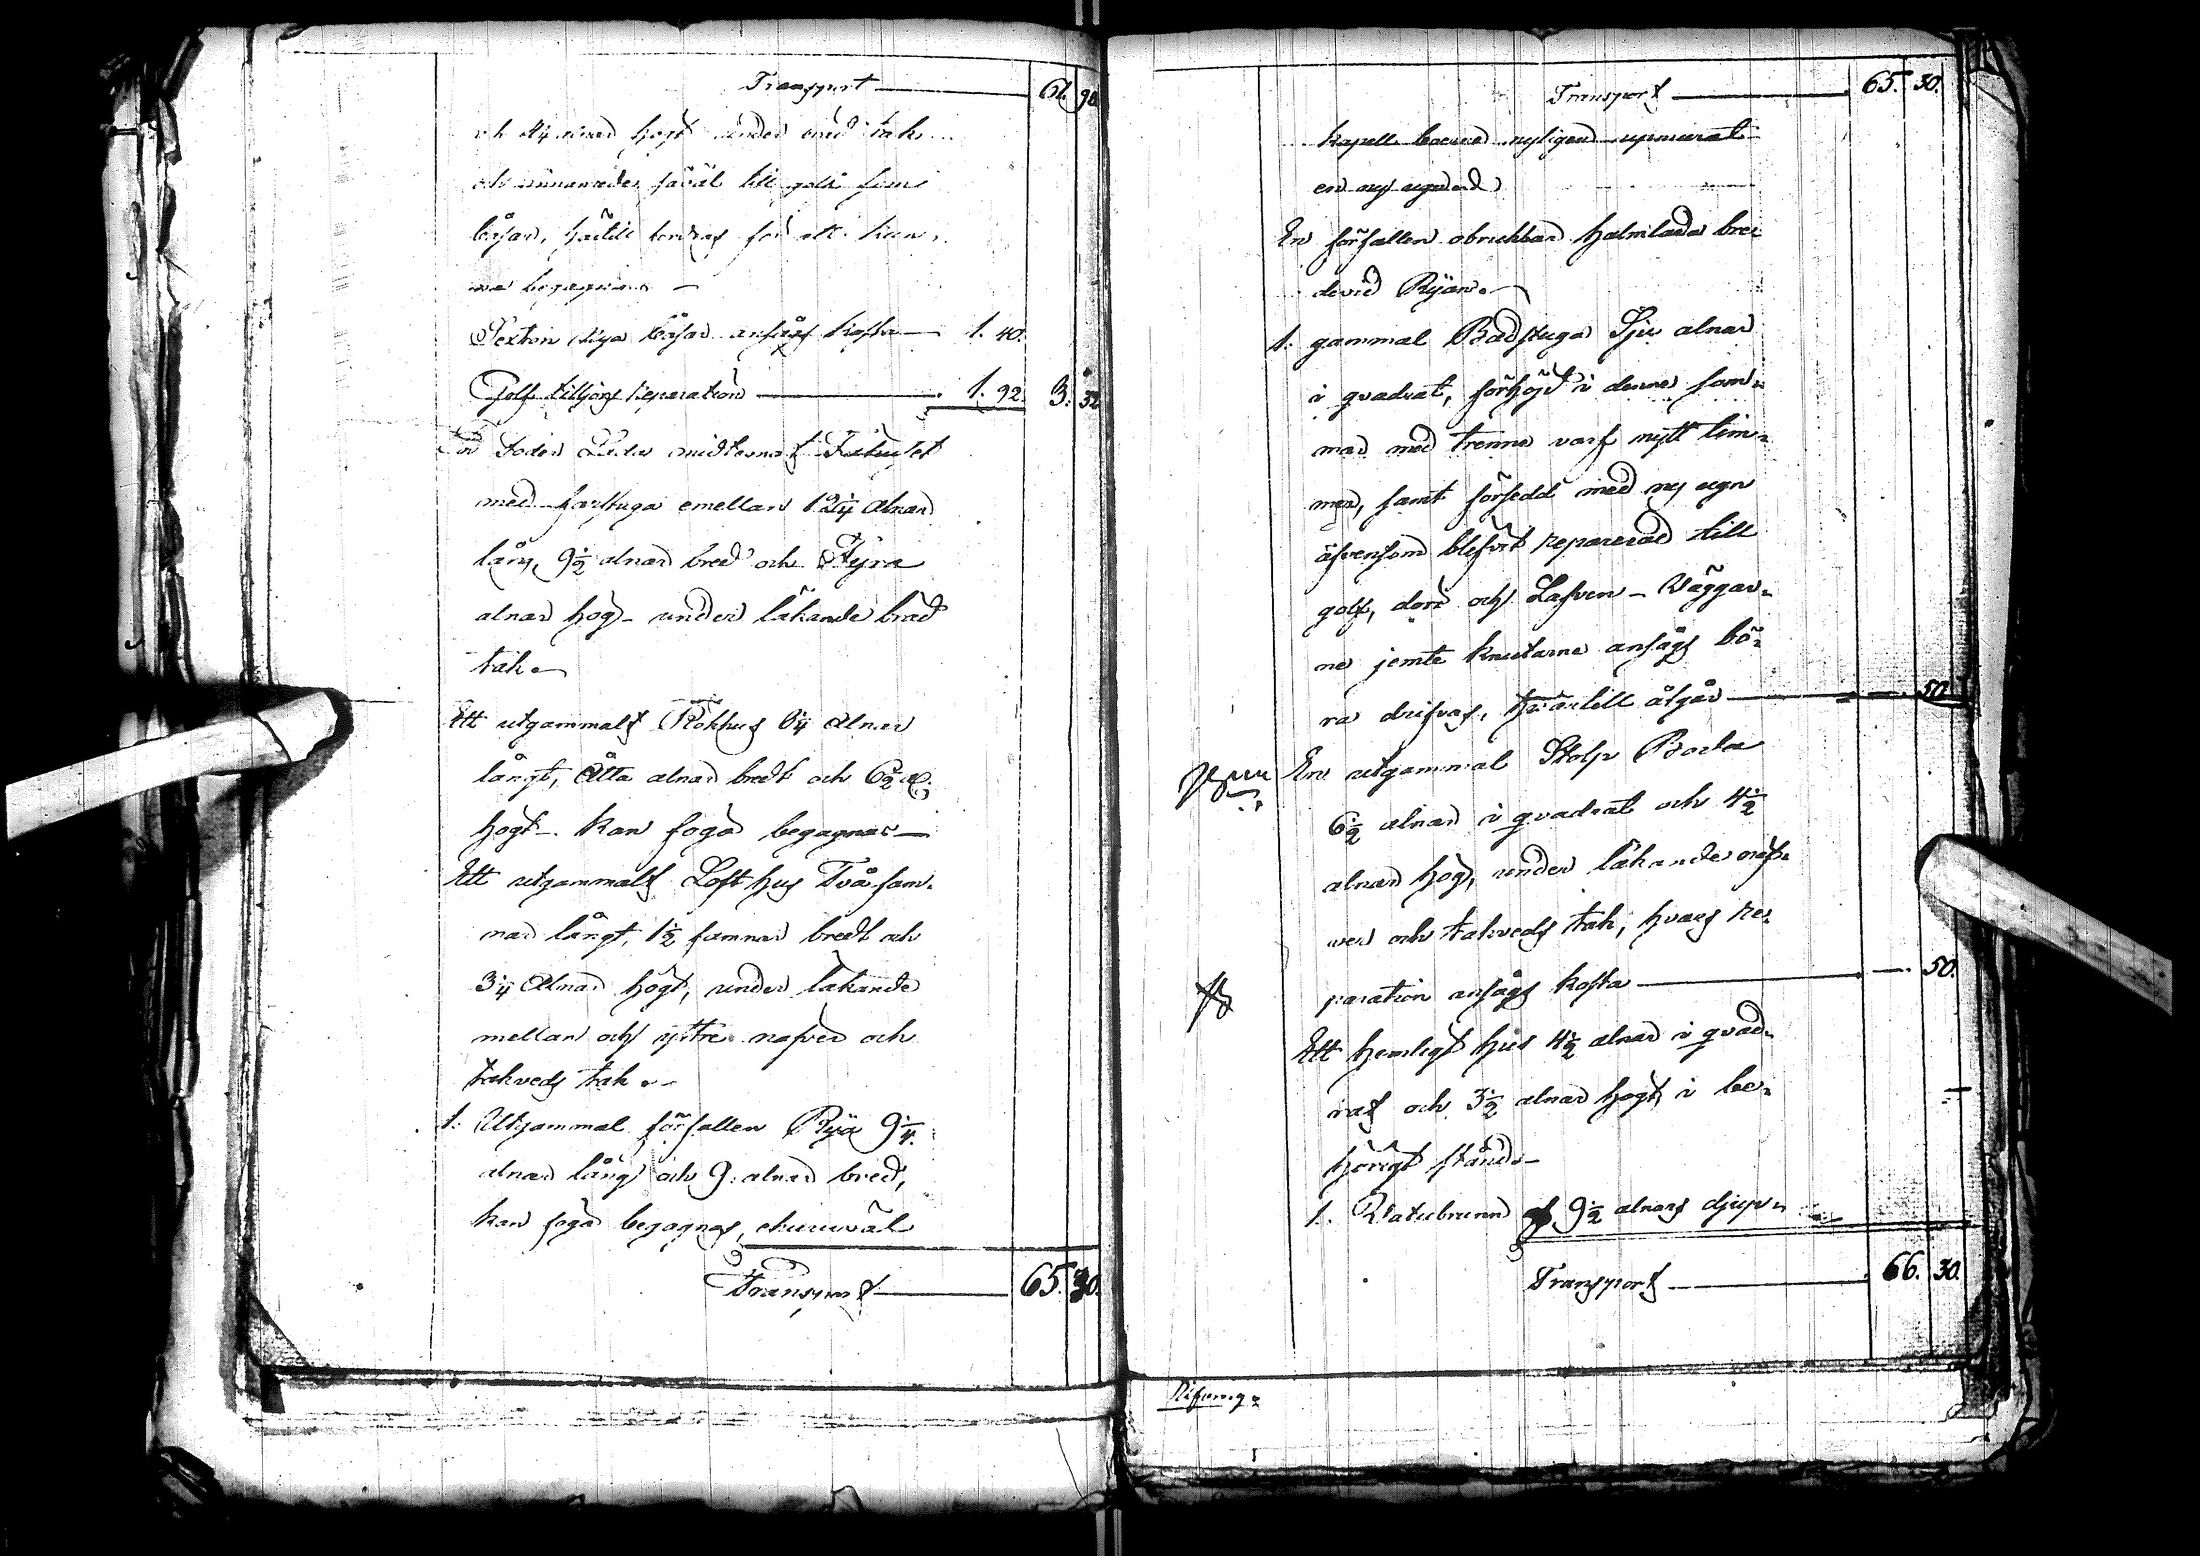 Transport — 61. 98.
och 4¼ alnar högt under bräd tak
och innanreder såväl till golf som
båsar, härtill fordras för att kun-
na begagnas —
Sexton nya Båsar ansågs kosta — 1. 40.
Golf tilljors reparation — 1. 92. 3. 32
Två Foder Lider midtemot Fähuset
med farstuga emellan 12¼ alnar
lång, 9½ alnar bred och Fyra
alnar hög – under läkande bräd
tak. —
Ett utgammalt Rökhus 6¼ Alnar
långt, Åtta alnar bredt och 6½ al.
högt – Kan foga begagnas —
Ett utgammalt Lofthus Två fam-
nar långt, 1½ famnar bredt och
3¼ Alnar högt, under läkande
mellan och yttre näfver och
takveds tak. —
1. Utgammal förfallen Ryä 9¼
alnar lång och 9. alnar bred,
kan foga begagnas, churuväl
Transport — 65. 30.
Transport — 65. 30.
kapell boerne nyligen upmurat
en ny ugn
En förfallen obrukbar halmlada bre-
devid Ryän. —
1. gammal Badstuga Sju alnar
i qvadrat, förhöjd i denne som-
mar med trenne varf nytt tim-
mer, samt försedd med ny ugn
äfvensom blefvit reparerad till
golf, dörr och Lafven – Väggar-
ne jemte knutarne ansågs bö-
ra drifvas, hvartill åtgår — 50.
En utgammal Stolp Boda
6½ alnar i qvadrat och 4½
alnar hög, under läkande näf-
ver och takveds tak, hvars re-
paration ansågs kosta — 50.
Ett hemligt hus 4½ alnar i qvad-
rat och 3½ alnar högt, i be-
hörigt stånd. —
1. Watubrunn af 9½ alnars djup
Transport — 66. 30.